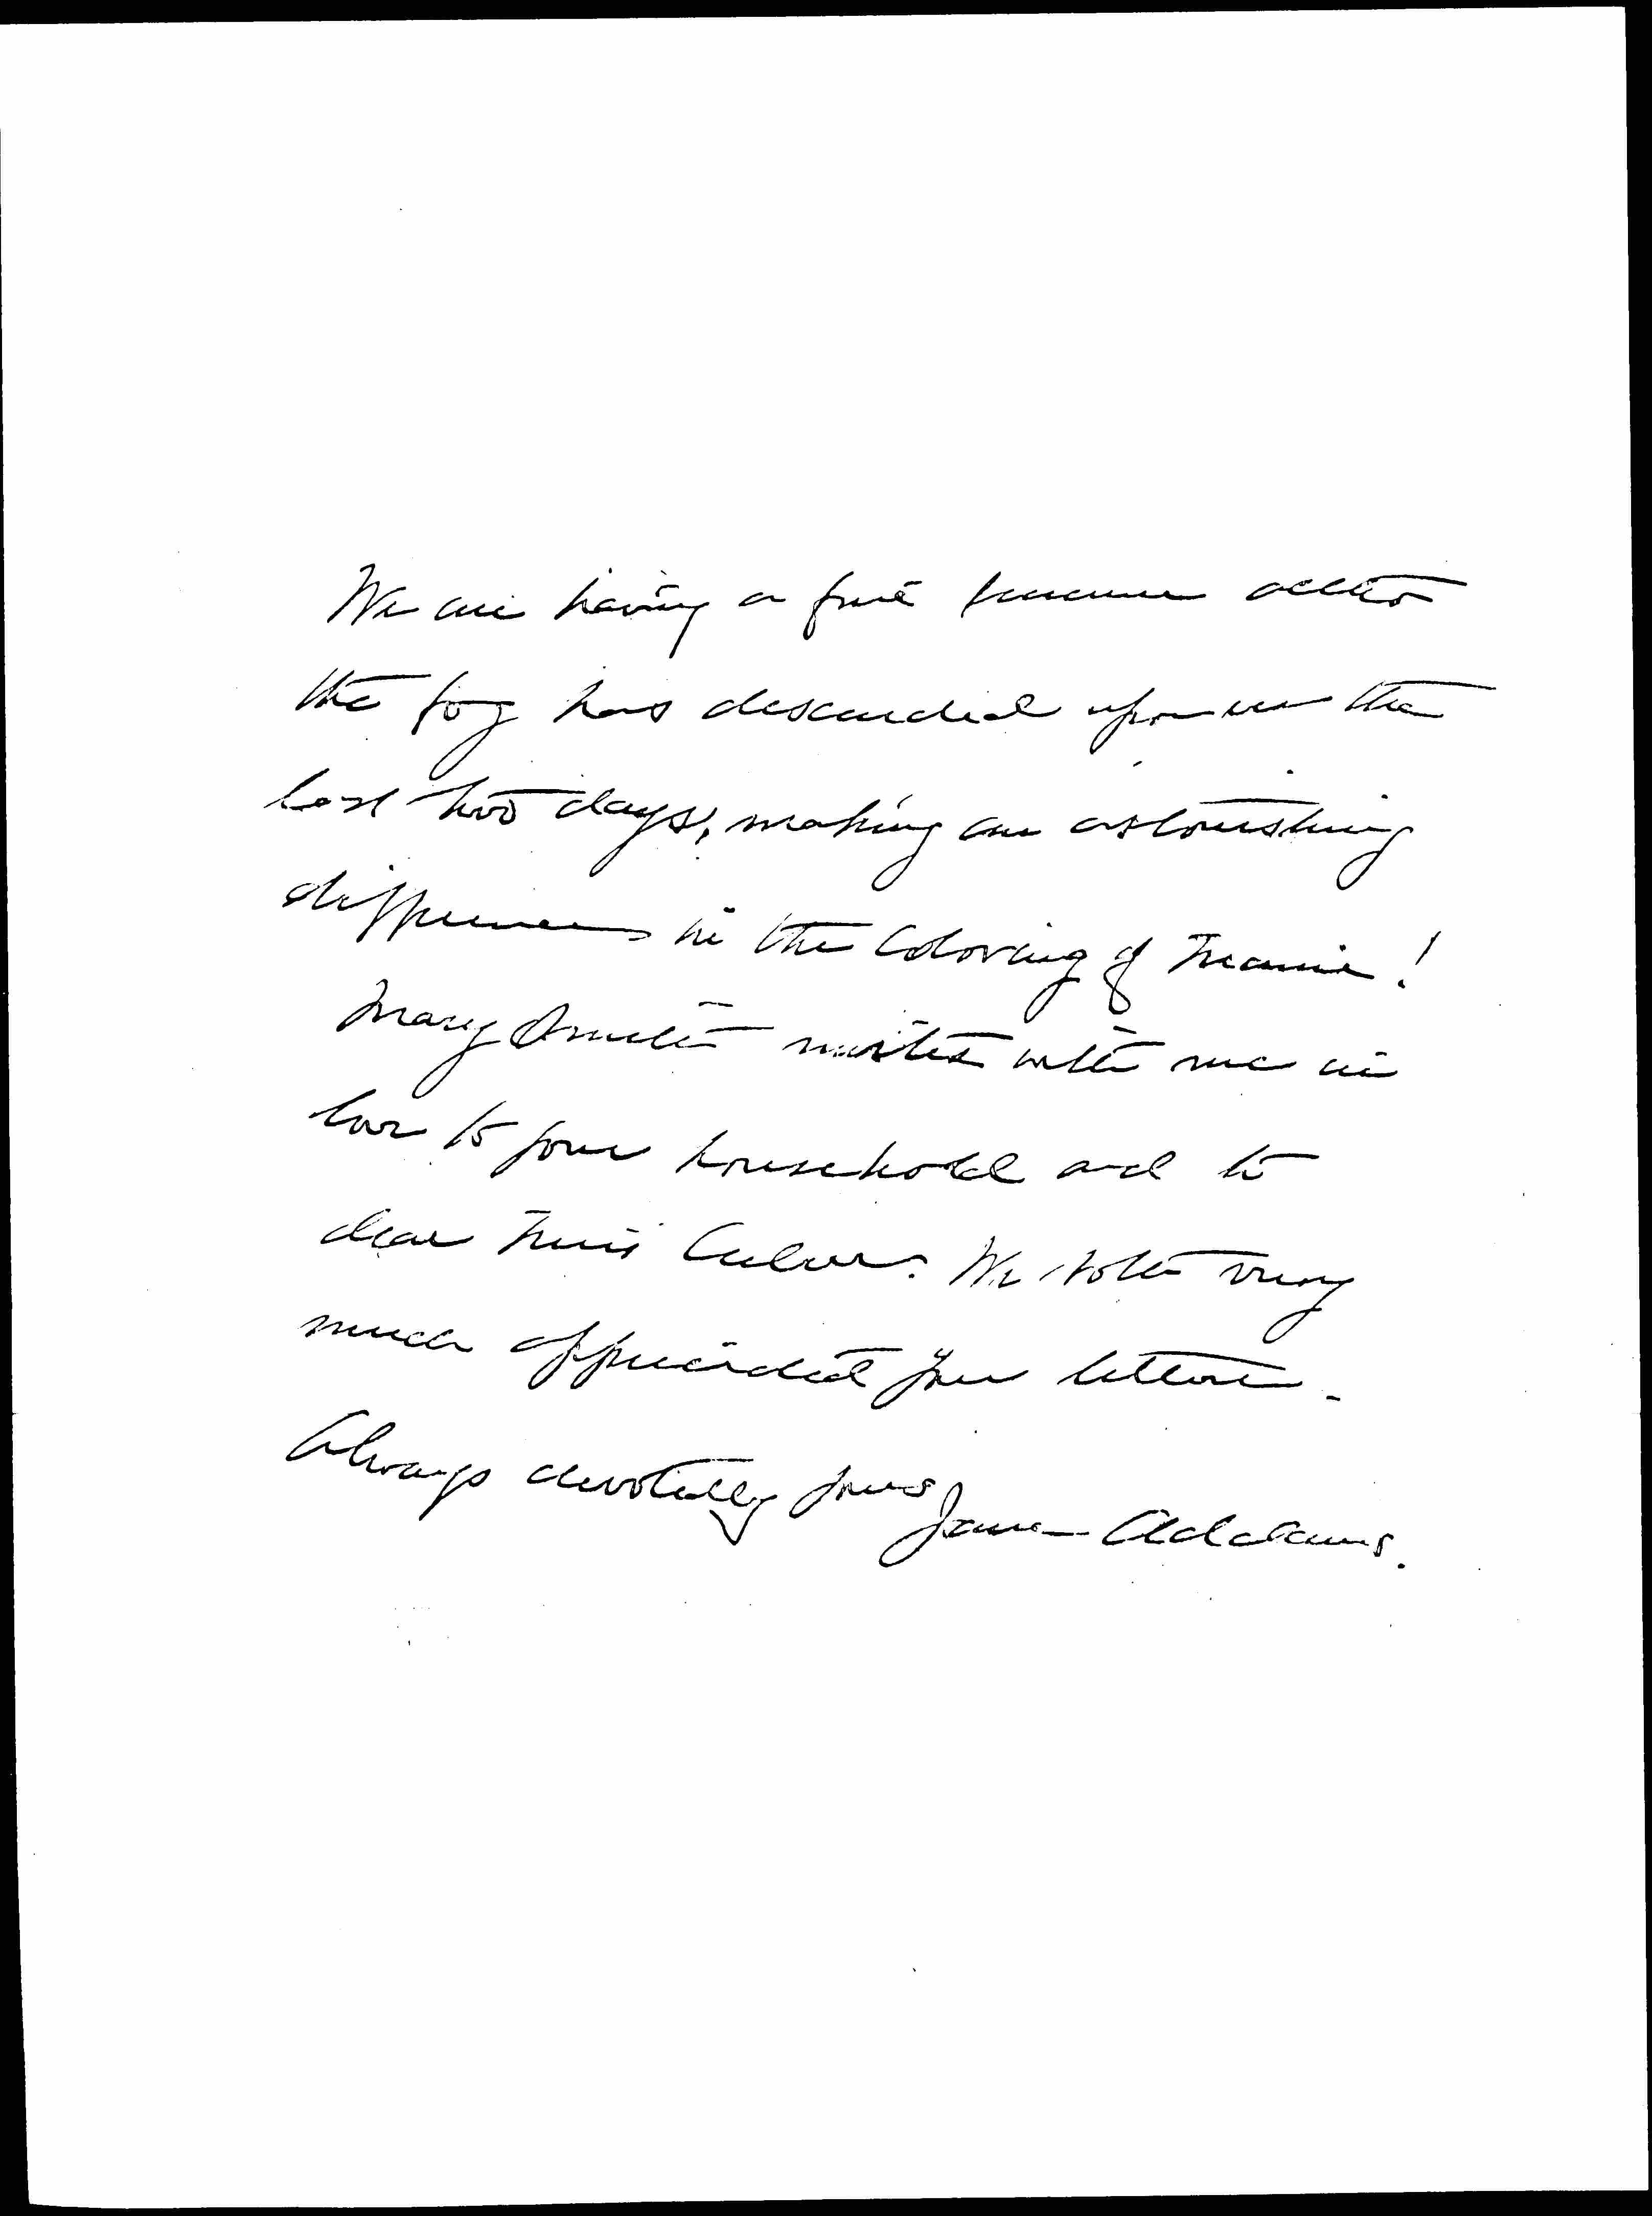 We are having a fine summer altho
the fog has descended upon us the
last two days, making an astonishing
difference in the coloring of Maine!
Mary Smith unites with me in
love to your household and to
dear Miss Culver. We both very
much appreciated your letters.
Always devotedly yours
Jane Addams.